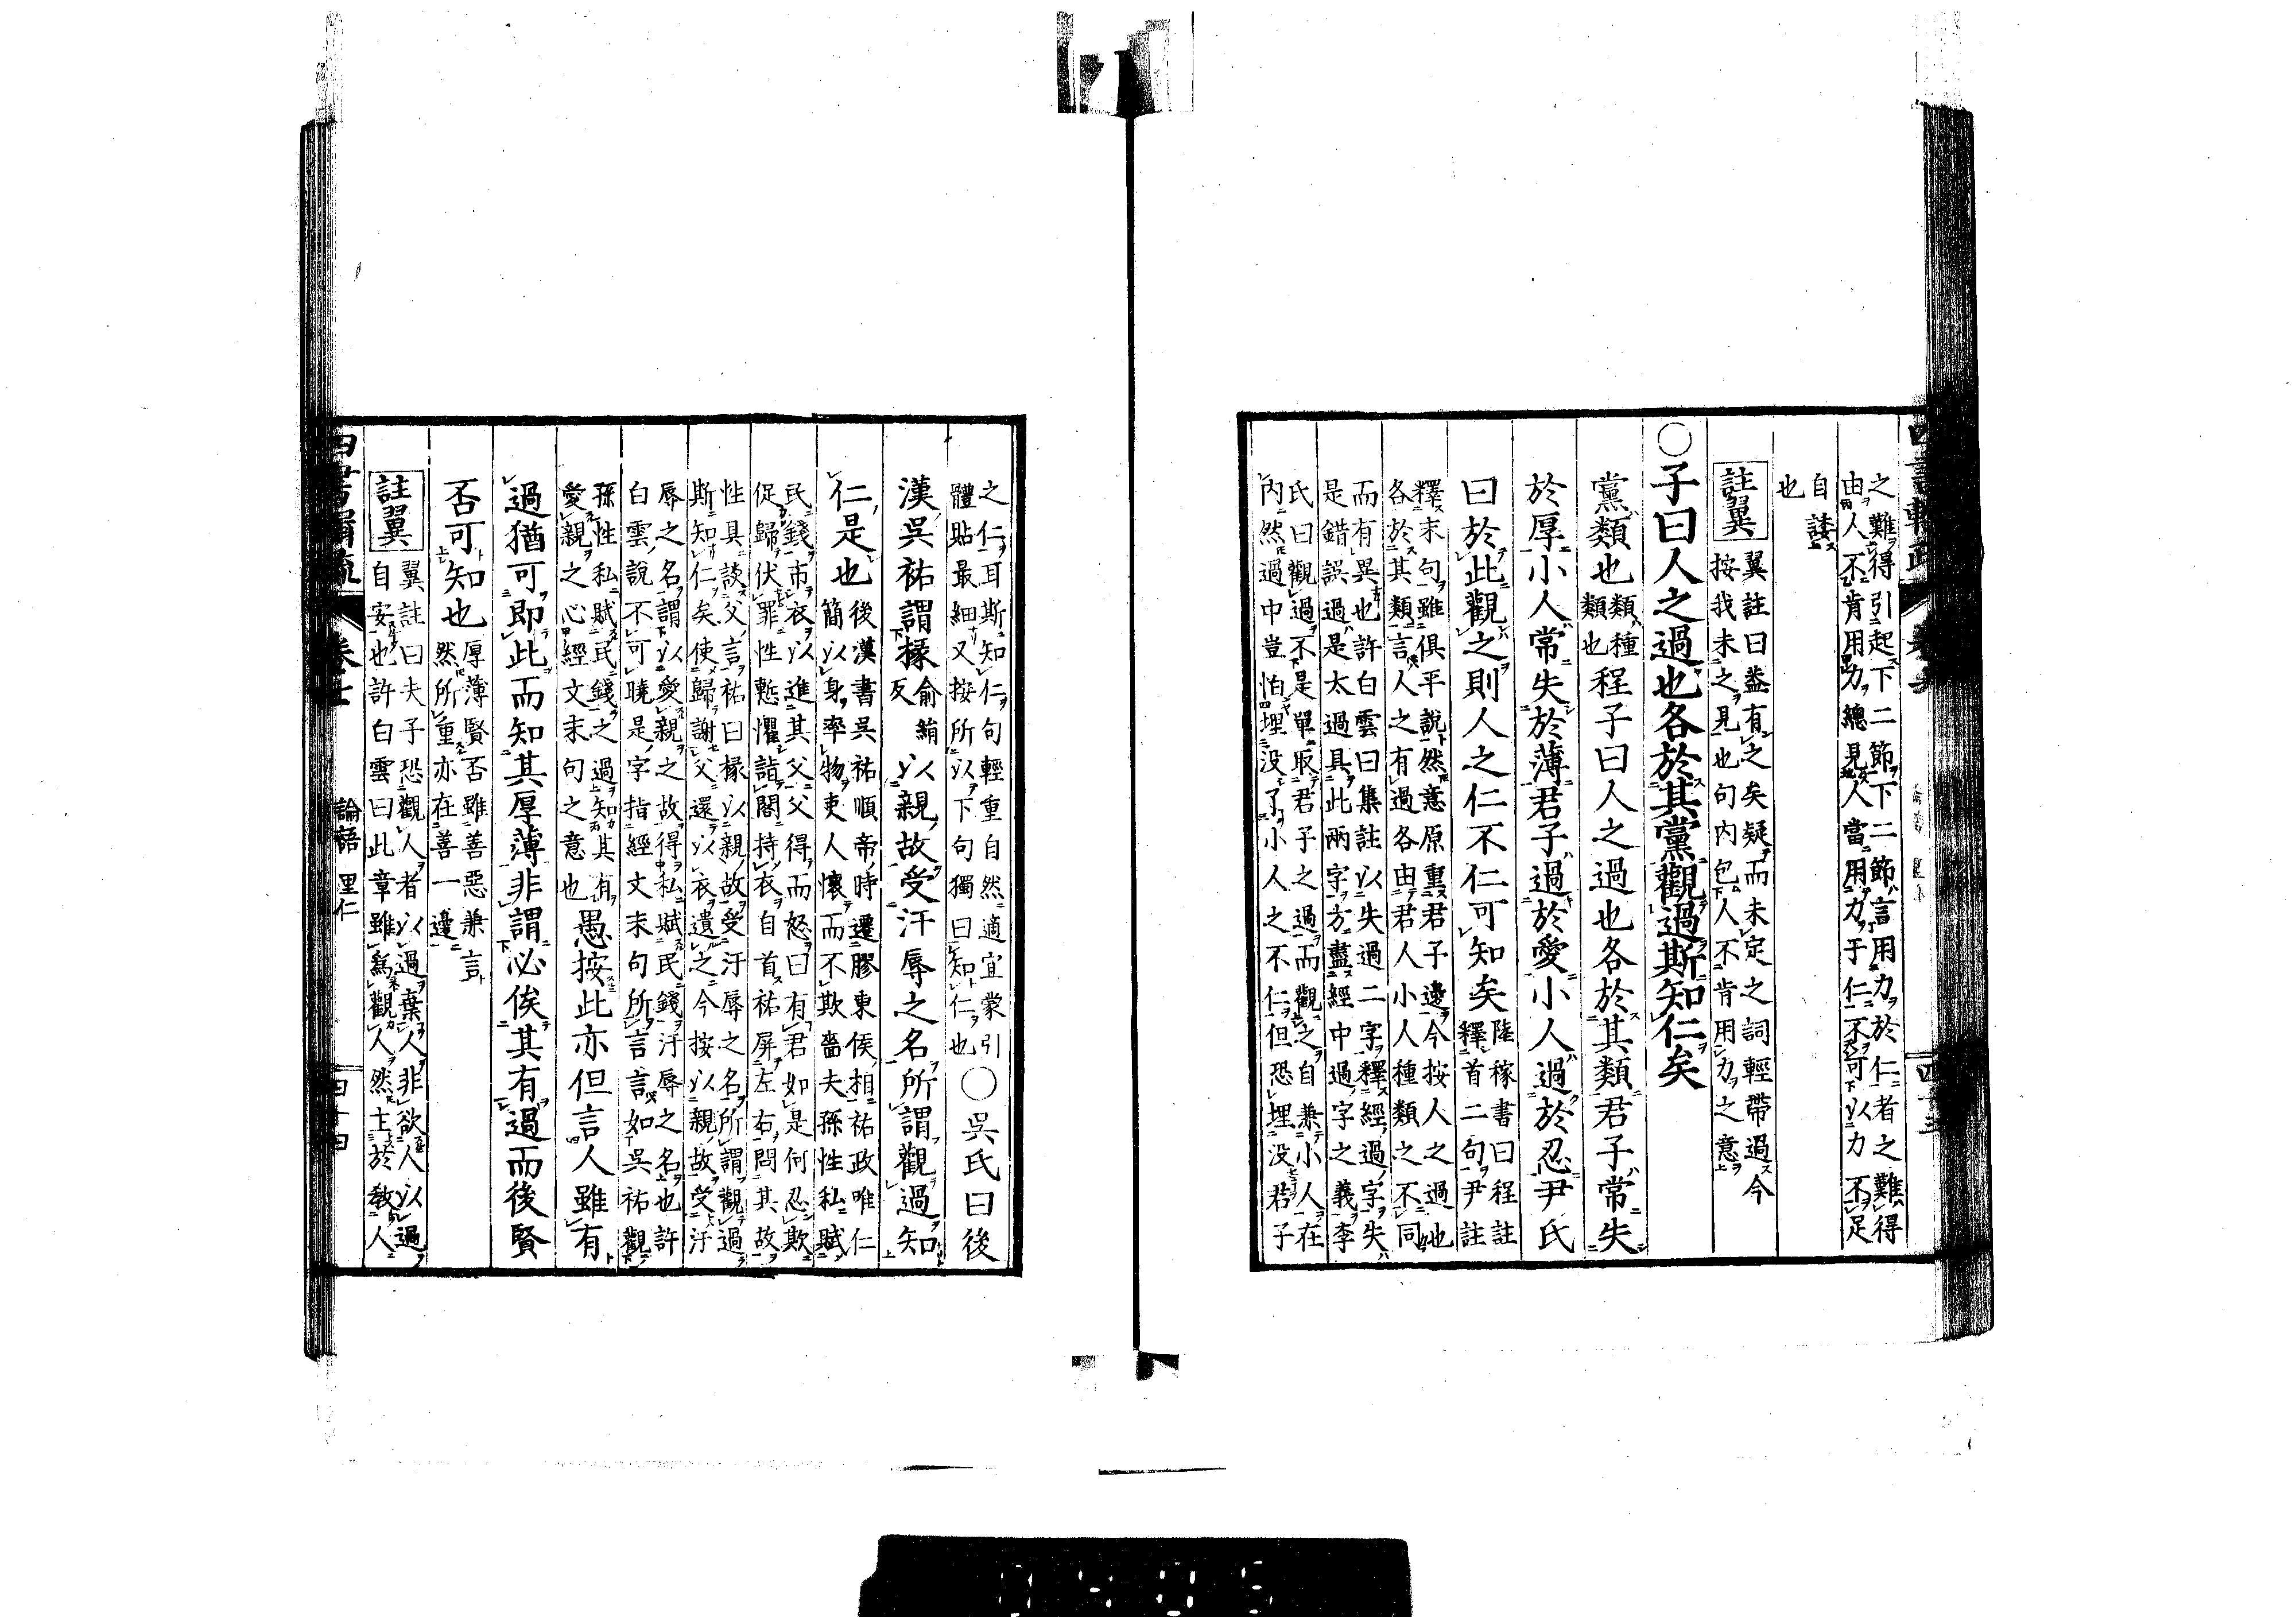 之難得引起下二節下二節言用力於仁者之難得
由人不肯用力總見人當用力于仁不可以力不足
自諉
也
註翼
翼註曰蓋有之矣疑而未定之詞輕帶過今
按我未之見也句内包人不肯用力之意
○子曰人之過也各於其黨觀過斯知仁矣
黨類也類種類也程子曰人之過也各於其類君子常失
於厚小人常失於薄君子過於愛小人過於忍尹氏
曰於此觀之則人之仁不仁可知矣
陸稼書曰程註
釋首二句尹註
釋末句雖俱平說然意原重君子邊今按人之過也
各於其類言人之有過各由君人小人種類之不同
而有異也許白雲曰集註以失過二字釋經過字失
是錯誤過是太過具此兩字方盡經中過字之義李
氏曰觀過不是單取君子之過而觀之自兼小人在
内然過中豈怕埋没了小人之不仁但恐埋没君子
之仁耳斯知仁句輕重自然適宜蒙引
體貼最細又按所以下句獨曰知仁也
○吳氏曰後
漢吳祐謂掾俞絹反以親故受汙辱之名所謂觀過知
仁是也
後漢書吳祐順帝時遷膠東侯相祐政唯仁
簡以身率物吏人懷而不欺嗇夫孫性私賦
民錢市衣以進其父父得而怒曰有君如是何忍欺
促歸伏罪性慙懼詣閤持衣自首祐屏左右問其故
性具談父言祐曰掾以親故受汙辱之名所謂觀過
斯知仁矣使歸謝父還以衣遺之今按以親故受汙
辱之名謂以愛親之故得私賦民錢汙辱之名也許
白雲說不可曉是字指經文末句所言言如吳祐觀
孫性私賦民錢之過知其有
愛親之心經文末句之意也
愚按此亦但言人雖有
過猶可即此而知其厚薄非謂必俟其有過而後賢
否可知也
厚薄賢否雖善惡兼言
然所重亦在善一邊
註翼
翼註曰夫子恐觀人者以過棄人非欲人以過
自安也許白雲曰此章雖爲觀人然主於教人
論語 里仁